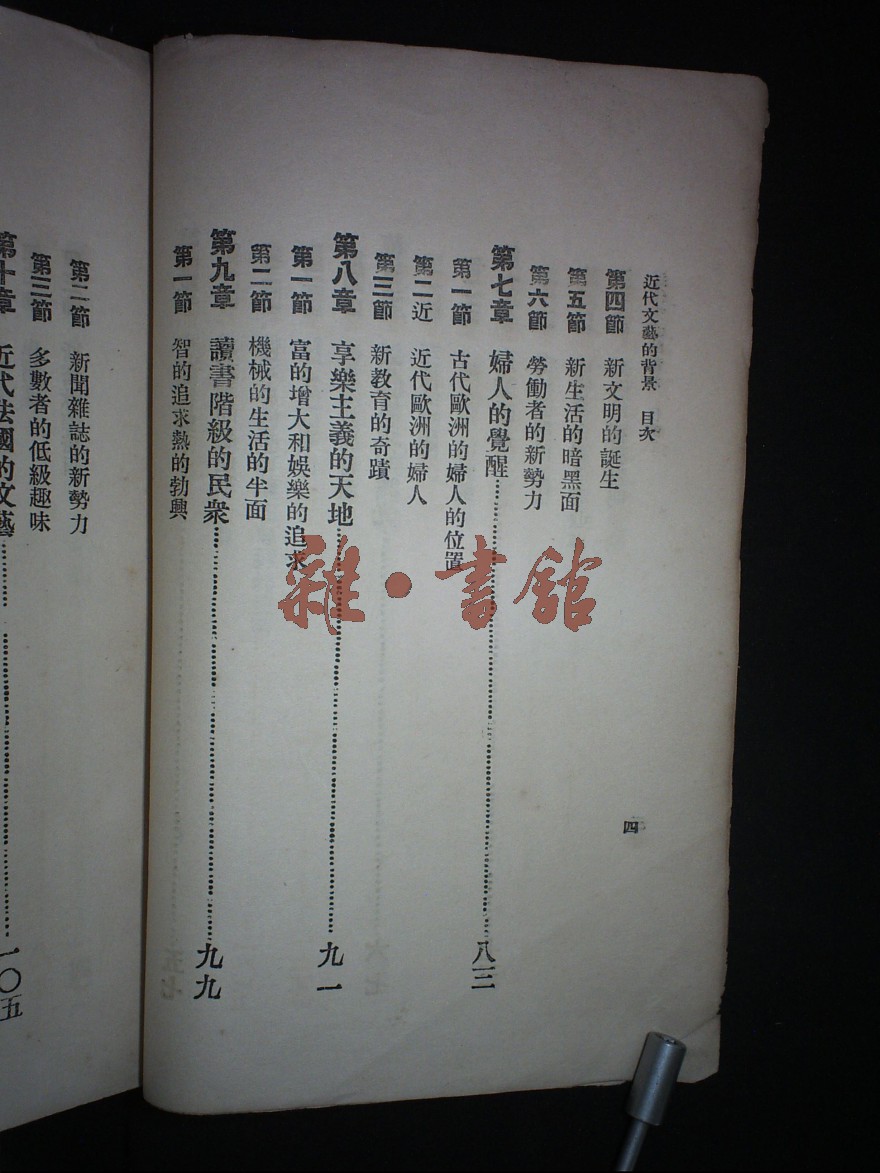 近代文藝的背景　目次
四
第四節　新文明的誕生
第五節　新生活的暗黑面
第六節　勞働者的新勢力
第七章　婦人的覺醒……八三
第一節　古代歐洲的婦人的位置
第二近　近代歐洲的婦人
第三節　新教育的奇蹟
第八章　享樂主義的天地……九一
第一節　富的增大和娛樂的追求
第二節　機械的生活的半面
第九章　讀書階級的民衆……九九
第一節　智的追求熱的勃興
第二節　新聞雜誌的新勢力
第三節　多數者的低級趣味
第十章　近代法國的文藝……一〇五
雜·書館